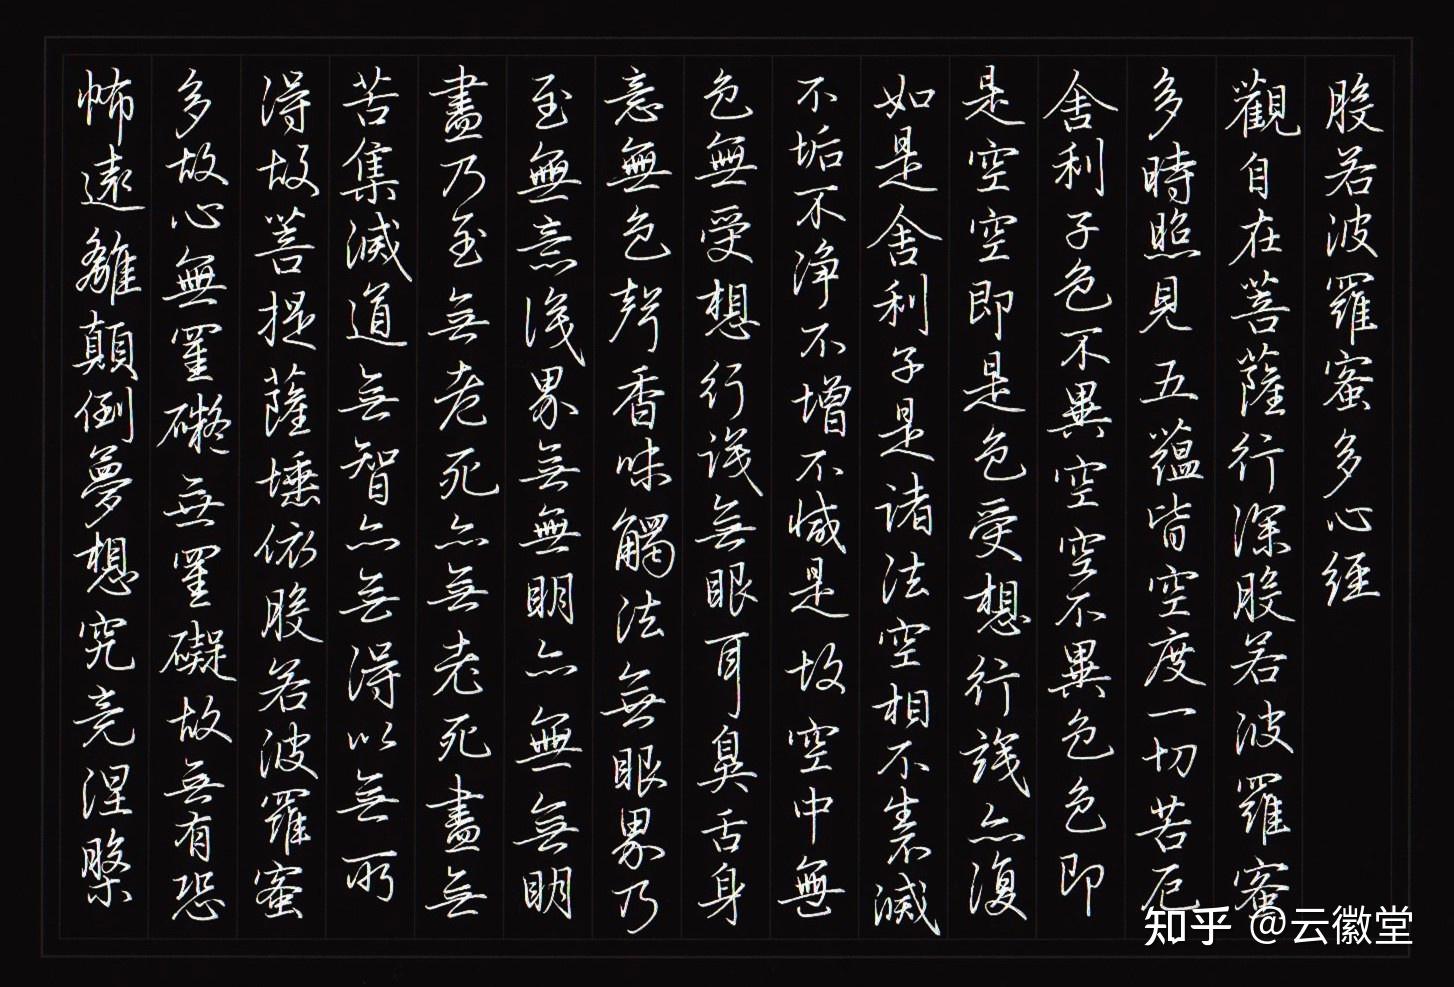 般若波羅蜜多心經
觀自在菩薩行深般若波羅蜜
多時照見五蘊皆空度一切苦厄
舍利子色不異空空不異色色即
是空空即是色受想行識亦復
如是舍利子是諸法空相不生不滅
不垢不净不增不減是故空中無
色無受想行識無眼耳鼻舌身
意無色聲香味觸法無眼界乃
至無意識界無無明亦無無明
盡乃至無老死亦無老死盡無
苦集滅道無智亦無得以無所
得故菩提薩埵依般若波羅蜜
多故心無罣礙無罣礙故無有恐
怖遠離顛倒夢想究竟涅槃
知乎 @云徽堂